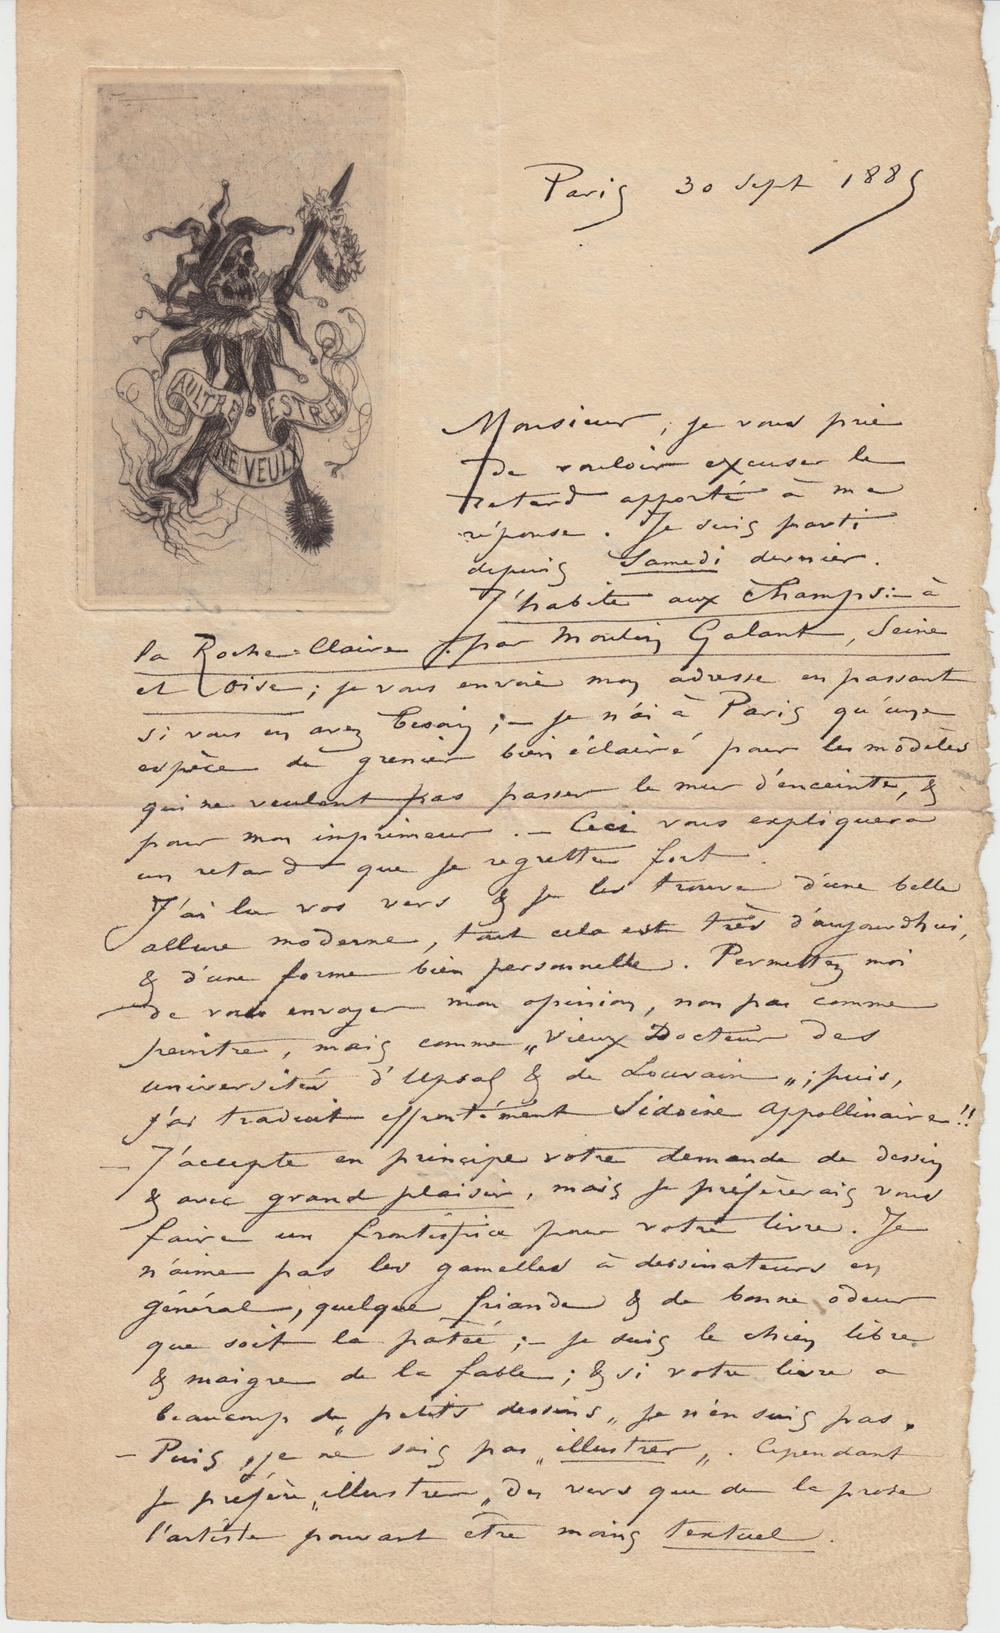 Paris 30 Sept 1885
AULTRE
NE VEULX
ESTRE
Monsieur, je vous prie
de vouloir excuser le
retard apporté à ma
réponse. Je suis parti
depuis Samedi dernier.
J'habite aux champs :- à
la Roche-Claire par Moulin Galant, Seine
et Oise ; je vous envoie mon adresse en passant
si vous en avez besoin ;- je n'ai à Paris qu'une
espèce de grenier bien éclairé pour les modèles
qui ne veulent pas passer le mur d'enceinte, &
pour mon imprimeur. - Ceci vous expliquera
un retard que je regrette fort.
J'ai lu vos vers & je les trouve d'une belle
allure moderne, tout cela est très d'aujourdhui,
& d'une forme bien personnelle. Permettez moi
de vous envoyer mon opinion, non pas comme
peintre, mais comme „Vieux Docteur des
universités d'Upsal & de Louvain„ ; puis,
j'ai traduit effrontément Sidoine Appollinaire !!
- J'accepte en principe votre demande de dessin
& avec grand plaisir, mais je préfèrerais vous
faire un frontispice pour votre livre. Je
n'aime pas les gamelles à dessinateurs en
général, quelque friande & de bonne odeur
que soit la patée ;- je suis le chien libre
& maigre de la fable ; & si votre livre a
beaucoup de „petits dessins„ je n'en suis pas.
- Puis, je ne sais pas „illustrer„. Cependant
je préfère „illustrer„ des vers que de la prose
l'artiste pouvant être moins textuel.